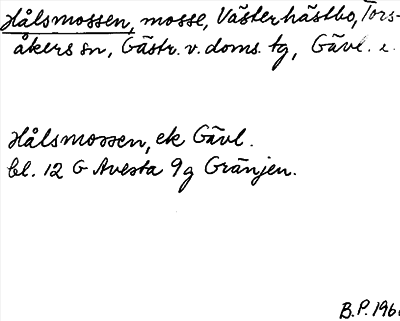 Hålsmossen, mosse, Västerhästbo, Tors-
åkers sn, Gästr. v. doms. tg, Gävl. l.
Hålsmossen, ek Gävl.
bl. 12 G Avesta 9g Gränjen.
B.P. 196